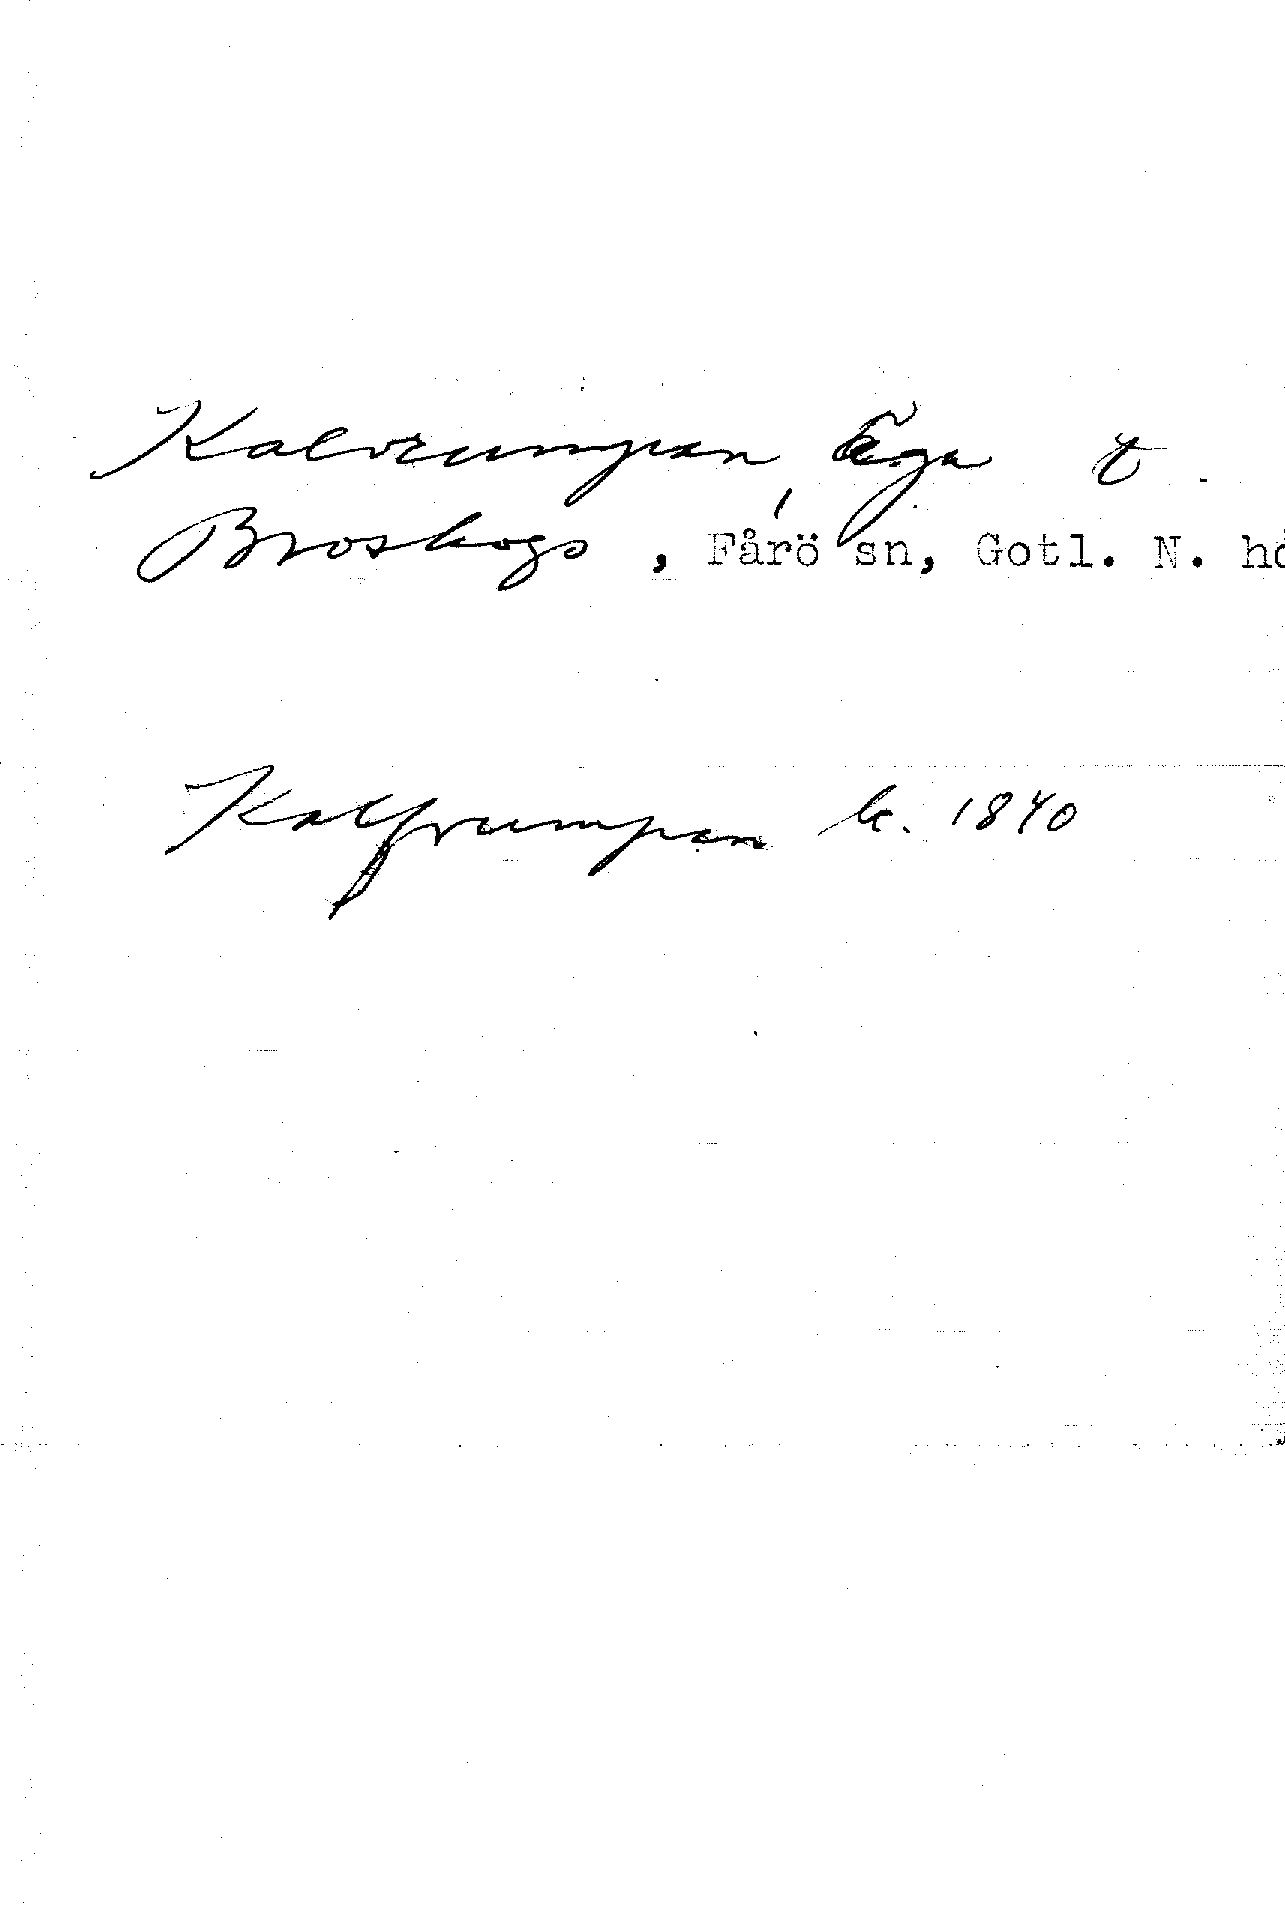 Kalvrumpan, äga t
Broskogs, Fårö sn, Gotl. N. hd
Kalfrumpan k. 1840